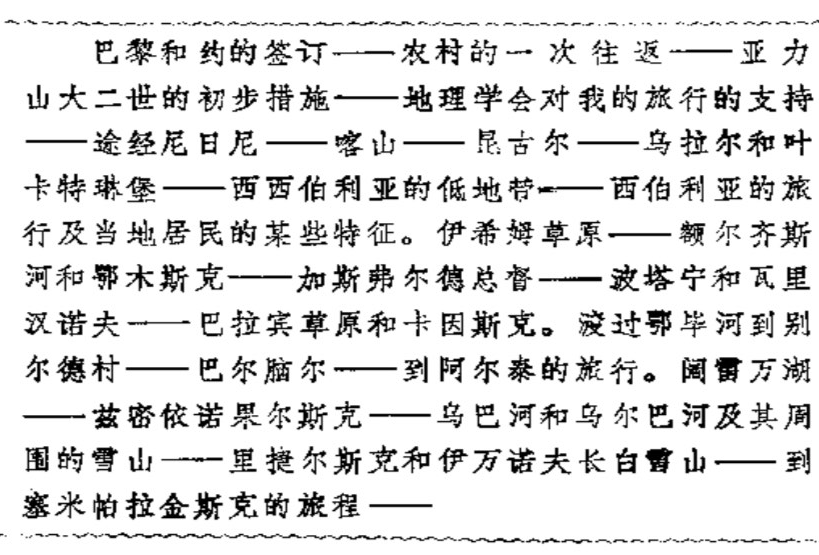 巴黎和约的签订——农村的一次往返——亚力
山大二世的初步措施——地理学会对我的旅行的支持
——途经尼日尼——喀山——昆古尔——乌拉尔和叶
卡特琳堡——西西伯利亚的低地带——西伯利亚的旅
行及当地居民的某些特征。伊希姆草原——额尔齐斯
河和鄂木斯克——加斯弗尔德总督——波塔宁和瓦里
汉诺夫——巴拉宾草原和卡因斯克。渡过鄂毕河到别
尔德村——巴尔脑尔——到阿尔泰的旅行。阔雷万湖
——兹密依诺果尔斯克——乌巴河和乌尔巴河及其周
围的雪山——里捷尔斯克和伊万诺夫长白雪山——到
塞米帕拉金斯克的旅程——